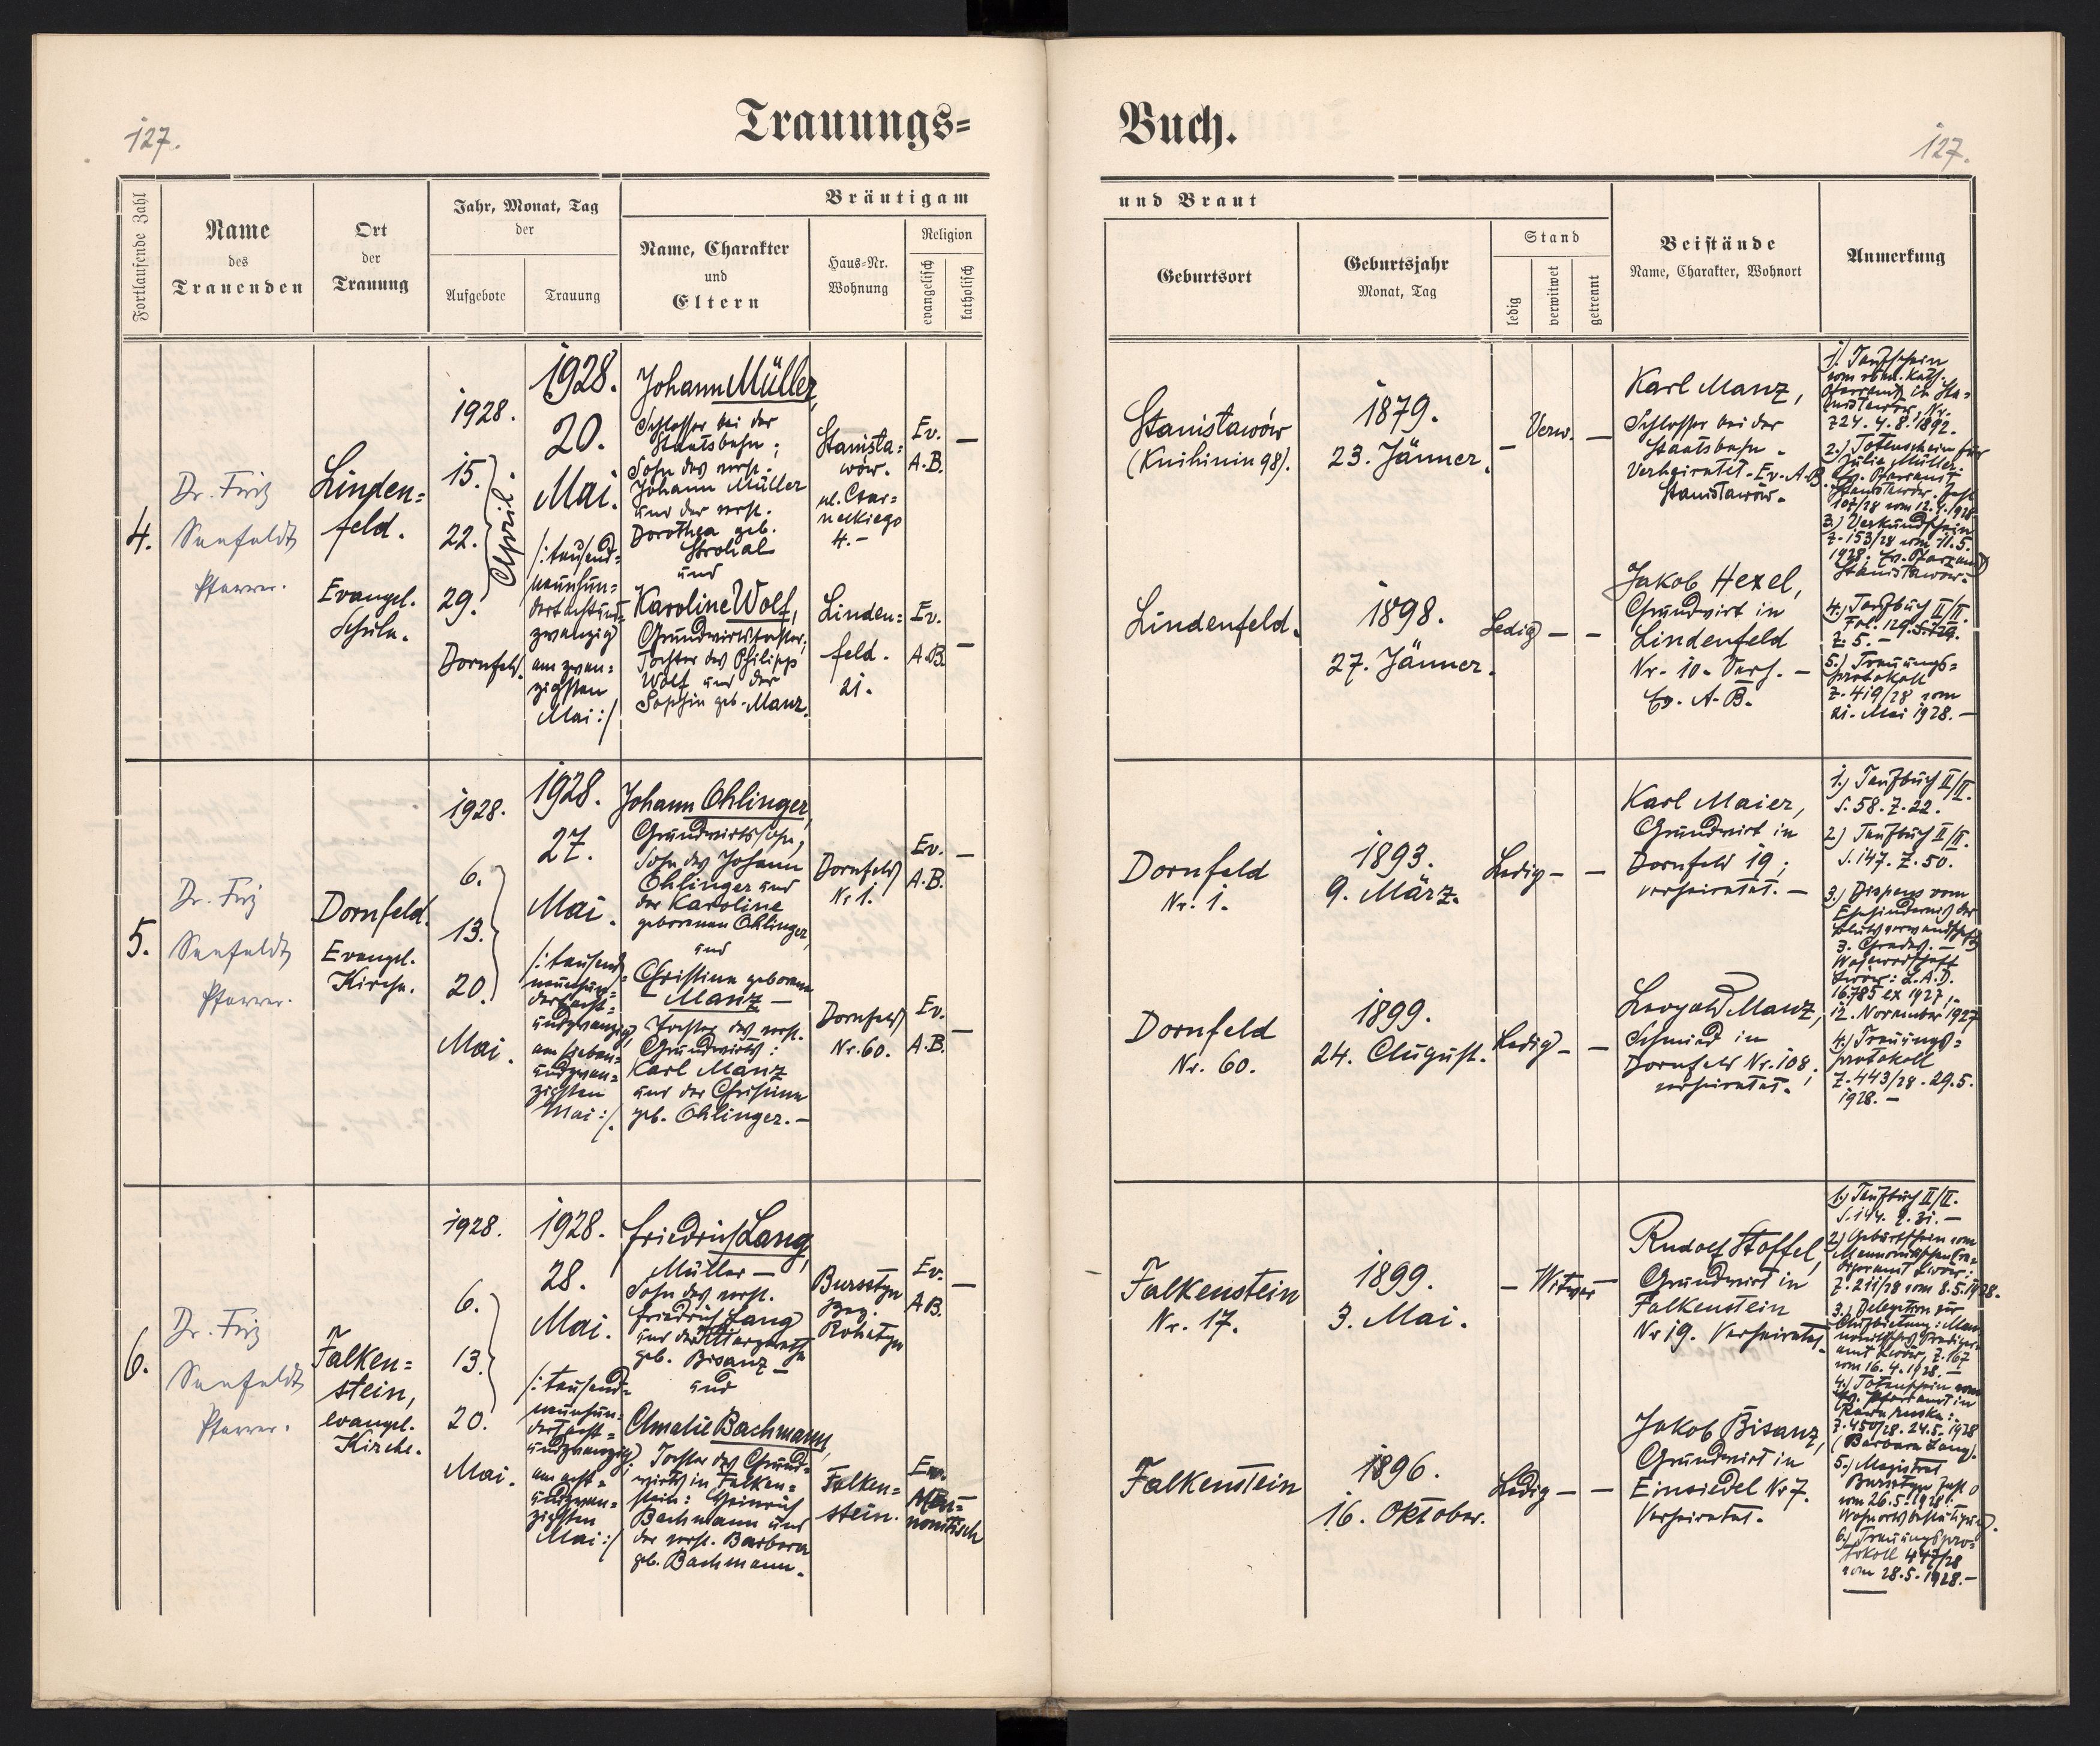 127.
Trauungs=
Buch.
127.
Fortlaufende Zahl
Name
des
Trauenden
Ort
der
Trauung
Jahr, Monat, Tag
der
Aufgebote
Trauung
Bräutigam
Name, Charakter
und
Eltern
Haus=Nr.
Wohnung
Religion
evangelisch
katholisch
und Braut
Geburtsort
Geburtsjahr
Monat, Tag
Stand
ledig
verwitwet
getrennt
Beistände
Name, Charakter, Wohnort
Anmerkung
4.
Dr. Fritz
Seefeldt
Pfarrer.
Linden=
feld.
Evangel.
Schule.
1928.
15.
22.
29.
April.
Dornfeld.
1928.
20.
Mai.
/:tausend=
neunhun=
dertachtund=
zwanzig
am zwan=
zigsten
Mai:/
Johann Müller,
Schlosser bei der
Staatsbahn;
Sohn des verst.
Johann Müller
und der verst.
Dorothea geb.
Strohal
und
Karoline Wolf,
Grundwirtstochter;
Tochter des Philipp
Wolf und der
Sophie geb. Manz.
Stanisła=
wów.
ul. Czar=
neckiego
4.-
Linden=
feld.
21.
Ev.
A.B.
—
Ev.
A.B.
—
Stanisławów
(Knihinin 98).
1879.
23. Jänner.
—
Verw.
—
Lindenfeld.
1898.
27. Jänner.
Ledig — —
Karl Manz,
Schlosser bei der
Staatsbahn.
Verheiratet - Ev. A.B.
Stanisławów.
Jakob Hexel,
Grundwirt in
Lindenfeld
Nr. 10. Verh. —
Ev. A.B.
1.) Taufschein
vom röm. kath.
Pfarramt in Sta=
nisławów, Nr.
724. 4.8.1892.
2.) Totenschein für
Julie Müller:
Ev. Pfarramt
Stanisławów. Zahl
107/28 vom 12.4.1928
3.) Verkündschein
Z. 153/28 vom 11.5.
1928. Ev. Pfarramt
Stanisławów.
4.) Taufbuch II/II.
Fol. 129. S. 129.
Z. 5. —
5.) Trauungs=
protokoll
Z. 419/28 vom
21. Mai 1928. —
5.
Dr. Fritz
Seefeldt
Pfarrer.
Dornfeld.
Evangel.
Kirche.
1928.
6.
13.
20.
Mai.
1928.
27.
Mai.
/:tausend=
neunhun=
dertacht=
undzwanzig
am sieben=
undzwan=
zigsten
Mai:/.
Johann Ohlinger,
Grundwirtssohn,
Sohn des Johann
Ohlinger und
der Karoline
geborenen Ohlinger,
und
Christine geborene
— Manz —
Tochter des verst.
Grundwirts:
Karl Manz
und der Christine
geb. Ohlinger. —
Dornfeld
Nr. 1.
Dornfeld
Nr. 60.
Ev.
A.B.
—
Ev.
A.B.
—
Dornfeld
Nr. 1.
1893.
9. März.
Ledig — —
Dornfeld
Nr. 60.
1899.
24. August.
Ledig — —
Karl Maier,
Grundwirt in
Dornfeld 19;
verheiratet. —
Leopold Manz,
Schmied in
Dornfeld Nr. 108;
verheiratet.
1.) Taufbuch II/II.
S. 58. Z. 22.
2.) Taufbuch II/II.
S. 147. Z. 50.
3.) Dispens vom
Ehehindernis der
Blutsverwandtschaft
3. Grades. —
Wojewodschaft
Lwów: L.A.D.
16.785 ex 1927,
12. November 1927
4.) Trauungs=
protokoll
Z. 443/28. 29.5.
1928. —
6.
Dr. Fritz
Seefeldt
Pfarrer.
Falken=
stein,
evangel.
Kirche.
1928.
6.
13.
20.
Mai.
1928.
28.
Mai.
/:tausend=
neunhun=
dertacht=
undzwanzig;
am acht=
undzwan=
zigsten
Mai:/
Friedrich Lang,
Müller —
Sohn des verst.
Friedrich Lang
und der Margarethe
geb. Bisanz —
und
Amalie Bachmann,
Tochter des Grund=
wirts in Falken=
stein: Heinrich
Bachmann und
der verst. Barbara
geb. Bachmann.
Bursztyn
Bez.
Rohatyn
Falken=
stein.
Ev.
A.B.
—
Ev.
Men=
nonitisch
Falkenstein
Nr. 17.
1899.
3. Mai.
— Witwer —
Falkenstein
1896.
16. Oktober.
Ledig — —
Rudolf Stoffel,
Grundwirt in
Falkenstein
Nr 19. Verheiratet.
Jakob Bisanz,
Grundwirt in
Einsiedel Nr 7.
Verheiratet.
1.) Taufbuch II/II.
S. 144. Z. 31. —
2.) Geburtschein vom
Mennonitischen Pre=
digeramt Lwów:
Z. 211/28 vom 8.5.1928.
3.) Delegation zur
Aufbietung: Men=
nonitisches Prediger
amt Lwów, Z. 167
vom 16.4.1928. —
4.) Totenschein vom
Ev. Pfarramt in
Rawa Ruska:
Z. 450/28. 24.5.1928
(Barbara Lang).
5.) Magistrat
Bursztyn
vom 26.5.1928:
Wohnortsbestätigung.
6.) Trauungspro=
tokoll 447/28
vom 28.5.1928. —